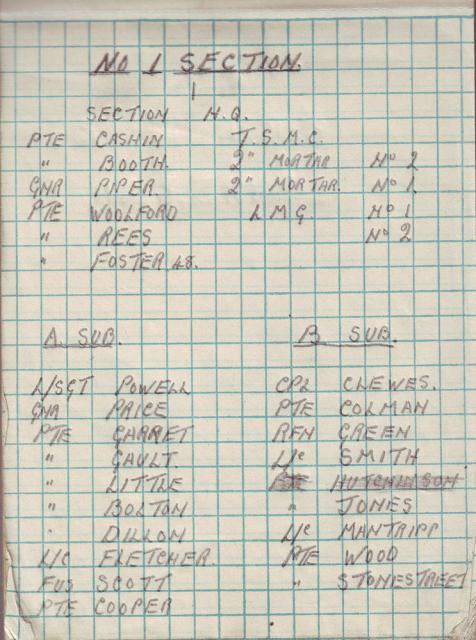 NO 1 SECTION.
SECTION H.Q.
PTE CASHIN T.S.M.C.
" BOOTH. 2" MORTAR No 2
GNR PIPER. 2" MORTAR. No 1.
PTE WOOLFORD L.M.G. No 1
" REES No 2
" FOSTER 48.
A. SUB.
L/SGT POWELL
GNR PRICE
PTE GARRET
" GAULT.
" LITTLE
" BOLTON
" DILLON
L/C FLETCHER.
FUS SCOTT
PTE COOPER
B. SUB.
CPL CLEWES.
PTE COLMAN
RFN GREEN
L/C SMITH
PTE HUTCHINSON
" JONES
L/C MANTRIPP
PTE WOOD
" STONESTREET